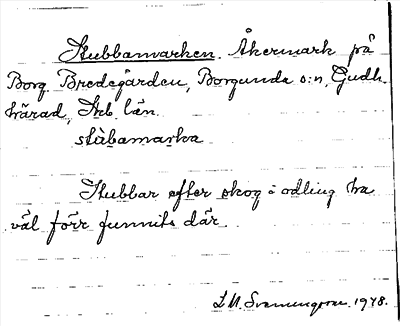 Stubbamarken. Åkermark på
Borg. Bredegården, Borgunda s:n, Gudh.
härad, Skb. län.
stubamarka
Stubbar efter skog i odling ha
väl förr funnits där.
1948.